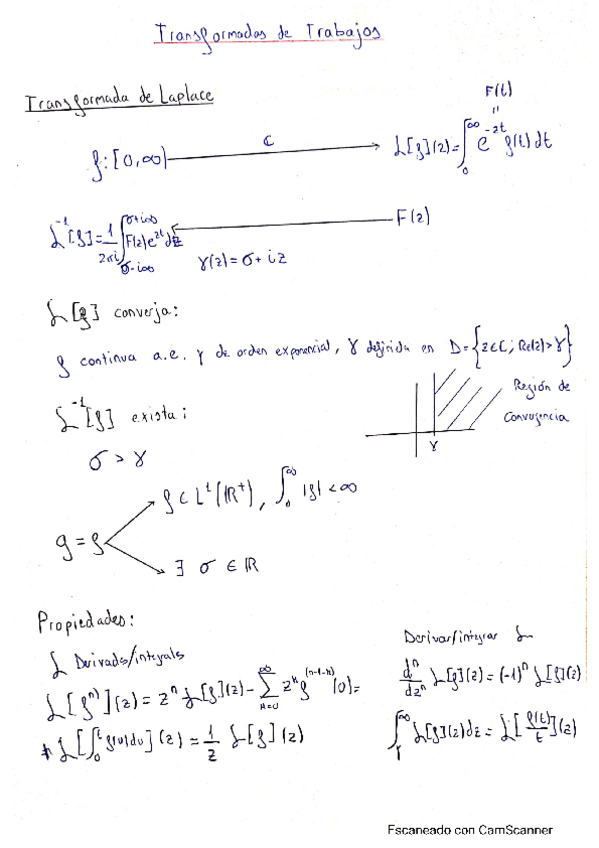 Transformadas de Trabajos
Transformada de Laplace
f: [0,∞) ⟶ C
F(t)
"
L[f](z) = ∫₀^∞ e^{-zt} f(t) dt
L⁻¹[f] = 1/2πi ∫_{σ-i∞}^{σ+i∞} F(z) e^{zt} dz ⟵ F(z)
γ(z) = σ + iz
L[f] converja:
f continua a.e. y de orden exponencial, γ definida en D = {z∈C; Re(z) > γ}
L⁻¹[f] exista:
Región de
Convergencia
γ
σ > γ
f ⊂ L¹(ℝ⁺), ∫₀^∞ |f| < ∞
g = f
∃ σ ∈ ℝ
Propiedades:
L Derivadas/integrals
L[fⁿ⁾](z) = zⁿ L[f](z) - ∑_{k=0}^∞ z^k f^{(n-1-k)}(0) =
* L[∫₀^t f(u)du](z) = 1/z L[f](z)
Derivar/integrar L
dⁿ/dzⁿ L[f](z) = (-1)ⁿ L[f](z)
∫^∞ L[f](z)dz = L[f(t)/t](z)
Escaneado con CamScanner